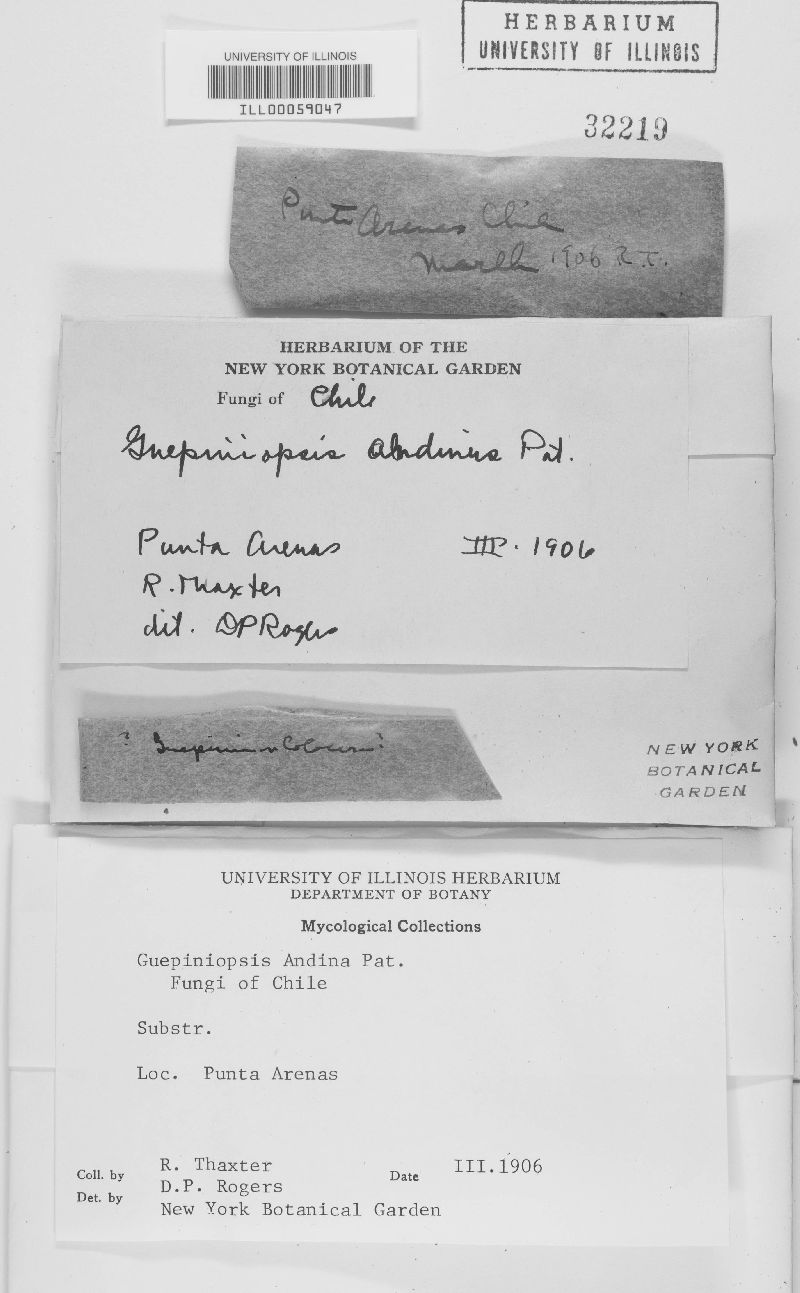 HERBARIUM
UNIVERSITY OF ILLINOIS
UNIVERSITY OF ILLINOIS
ILL00059047
32219
Punta Arenas Chile
March 1906 R.T.
HERBARIUM OF THE
NEW YORK BOTANICAL GARDEN
Fungi of Chile
Guepiniopsis Pat.
Punta Arenas III. 1906
R. Thaxter
det. DPRogers
NEW YORK
BOTANICAL
GARDEN
UNIVERSITY OF ILLINOIS HERBARIUM
DEPARTMENT OF BOTANY
Mycological Collections
Guepiniopsis Andina Pat.
Fungi of Chile
Substr.
Loc. Punta Arenas
Coll. by R. Thaxter Date III.1906
Det. by D.P. Rogers
New York Botanical Garden